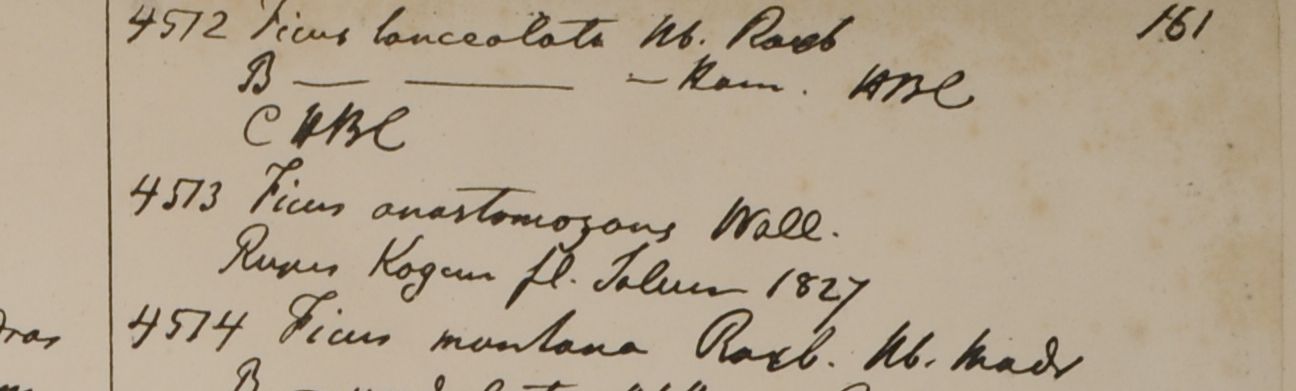 4572 Ficus lanceolata Hb. Roxb 161
B — — — Ham. HBC
C HBC
4573 Ficus anastomozans Wall.
Rupes Kogun fl. Saluen 1827
4574 Ficus montana Roxb. Hb. Madr
B